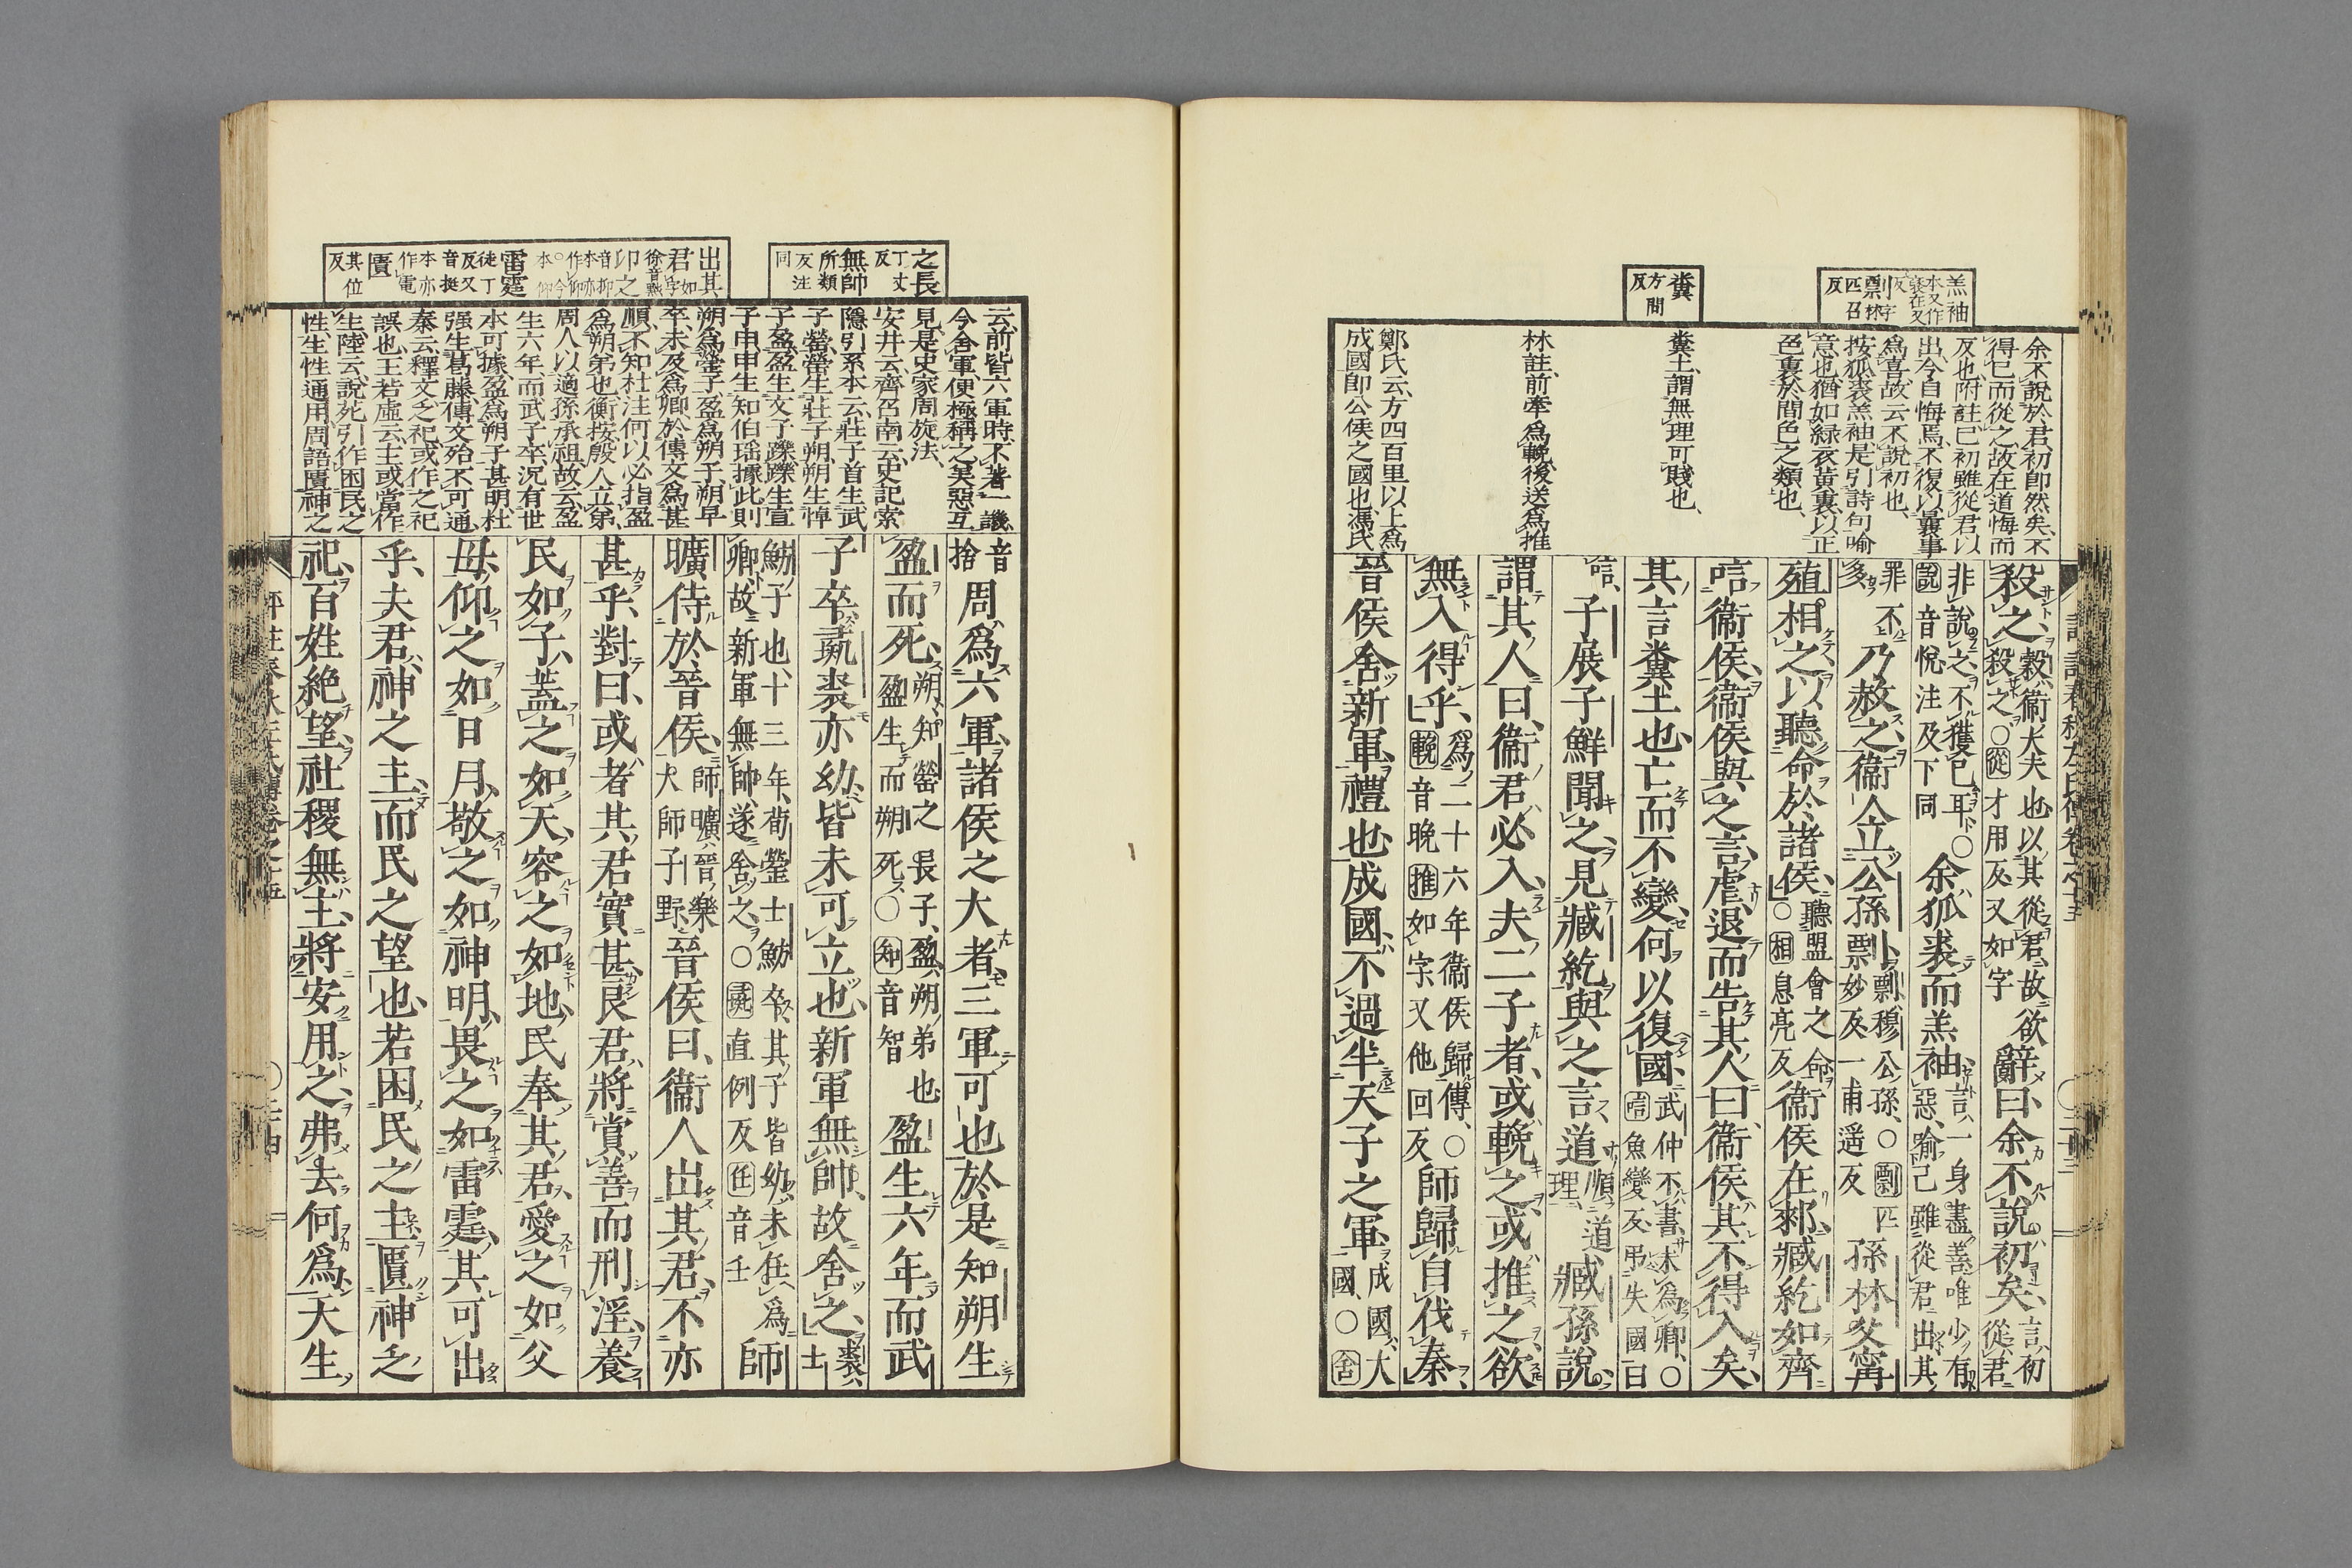 羔袖
本又作
褎在又
反
剽字林
匹召
反
糞
方問
反
余不說於君初即然矣、不
得已而從之、故在道悔而
反也、附註、已初雖從君以
出、今自悔焉、不復以曩事
爲喜、故云不說初也、
按狐裘羔袖是引詩句喻
意也、猶如綠衣黃裏、以正
色裏於間色之類也、
糞土、謂無理可賤也、
林註、前牽爲輓、後送爲推
鄭氏云、方四百里以上爲
成國、即公侯之國也、馮氏
殺之、穀衞大夫也、以其從君、故欲
殺之、○從才用反、又如字
辭曰、余不說初矣、言初從君
非說之、不獲已耳、○
說音悅、注及下同
余狐裘而羔袖、言一身盡善、唯少有
惡、喻己雖從君出、其
罪不
多
乃赦之、衞人立公孫剽、剽、穆公孫、○剽匹
妙反、一甫遥反
孫林父甯
殖相之、以聽命於諸侯、聽盟會之命、
○相息亮反
衞侯在郲、臧紇如齊
唁衞侯、衞侯與之言、虐、退而告其人曰、衞侯其不得入矣、
其言糞土也、亡而不變、何以復國、武仲不書、未爲卿、○
唁魚變反、弔失國曰
唁、子展子鮮聞之、見臧紇與之言、道、順道
理、
臧孫說、
謂其人曰、衞君必入、夫二子者、或輓之、或推之、欲
無入得乎、爲二十六年衞侯歸傳、○
輓音晚、推如字、又他回反
師歸自伐秦、
晉侯舍新軍、禮也、成國不過半天子之軍、成國、大
國、○舍
之長
丁丈
反
無帥
所類
反、注
同
出其
君如字
徐音黜
仰之
音仰
本亦
作卬
雷霆
徒丁
反、又
音挺
本亦
作電
匱
其位
反
云、前皆六軍時、不著一譏、
今舍軍、便極稱之、美惡互
見、是史家周旋法、
安井云、齊召南云、史記索
隱引系本云、莊子首生武
子罃、罃生莊子朔、朔生悼
子盈、盈生文子躒、躒生宣
子申、申生知伯瑤、據此則
朔爲罃子、盈爲朔子、朔早
卒、未及爲卿、於傳文爲甚
順、不知杜注何以必指盈
爲朔弟也、衡按、殷人立弟、
周人以適孫承祖、故云盈
生六年、而武子卒、況有世
本可據、盈爲朔子甚明、杜
强生葛藤、傳文殆不可通、
秦云、釋文、乏祀、或作之祀
誤也、王若虛云、主或當作
生、陸云、說苑引作困民之
性、生性通用、周語匱神之
音
捨
周爲六軍、諸侯之大者、三軍可也、於是知朔生
盈而死、朔、知罃之長子、盈、朔弟也、
盈生而朔死、○知音智
盈生六年而武
子卒、彘裘亦幼、皆未可立也、新軍無帥、故舍之、裘、士
魴子也、十三年、荀罃士魴卒、其子皆幼、未任爲
卿、故新軍無帥、遂舍之、○彘直例反、任音壬
師
曠侍於晉侯、師曠、晉樂
大師子野、
晉侯曰、衞人出其君、不亦
甚乎、對曰、或者其君實甚、良君將賞善而刑淫、養
民如子、蓋之如天、容之如地、民奉其君、愛之如父
母、仰之如日月、敬之如神明、畏之如雷霆、其可出
乎、夫君、神之主、而民之望也、若困民之主、匱神乏
祀、百姓絕望、社稷無主、將安用之、弗去何爲、天生